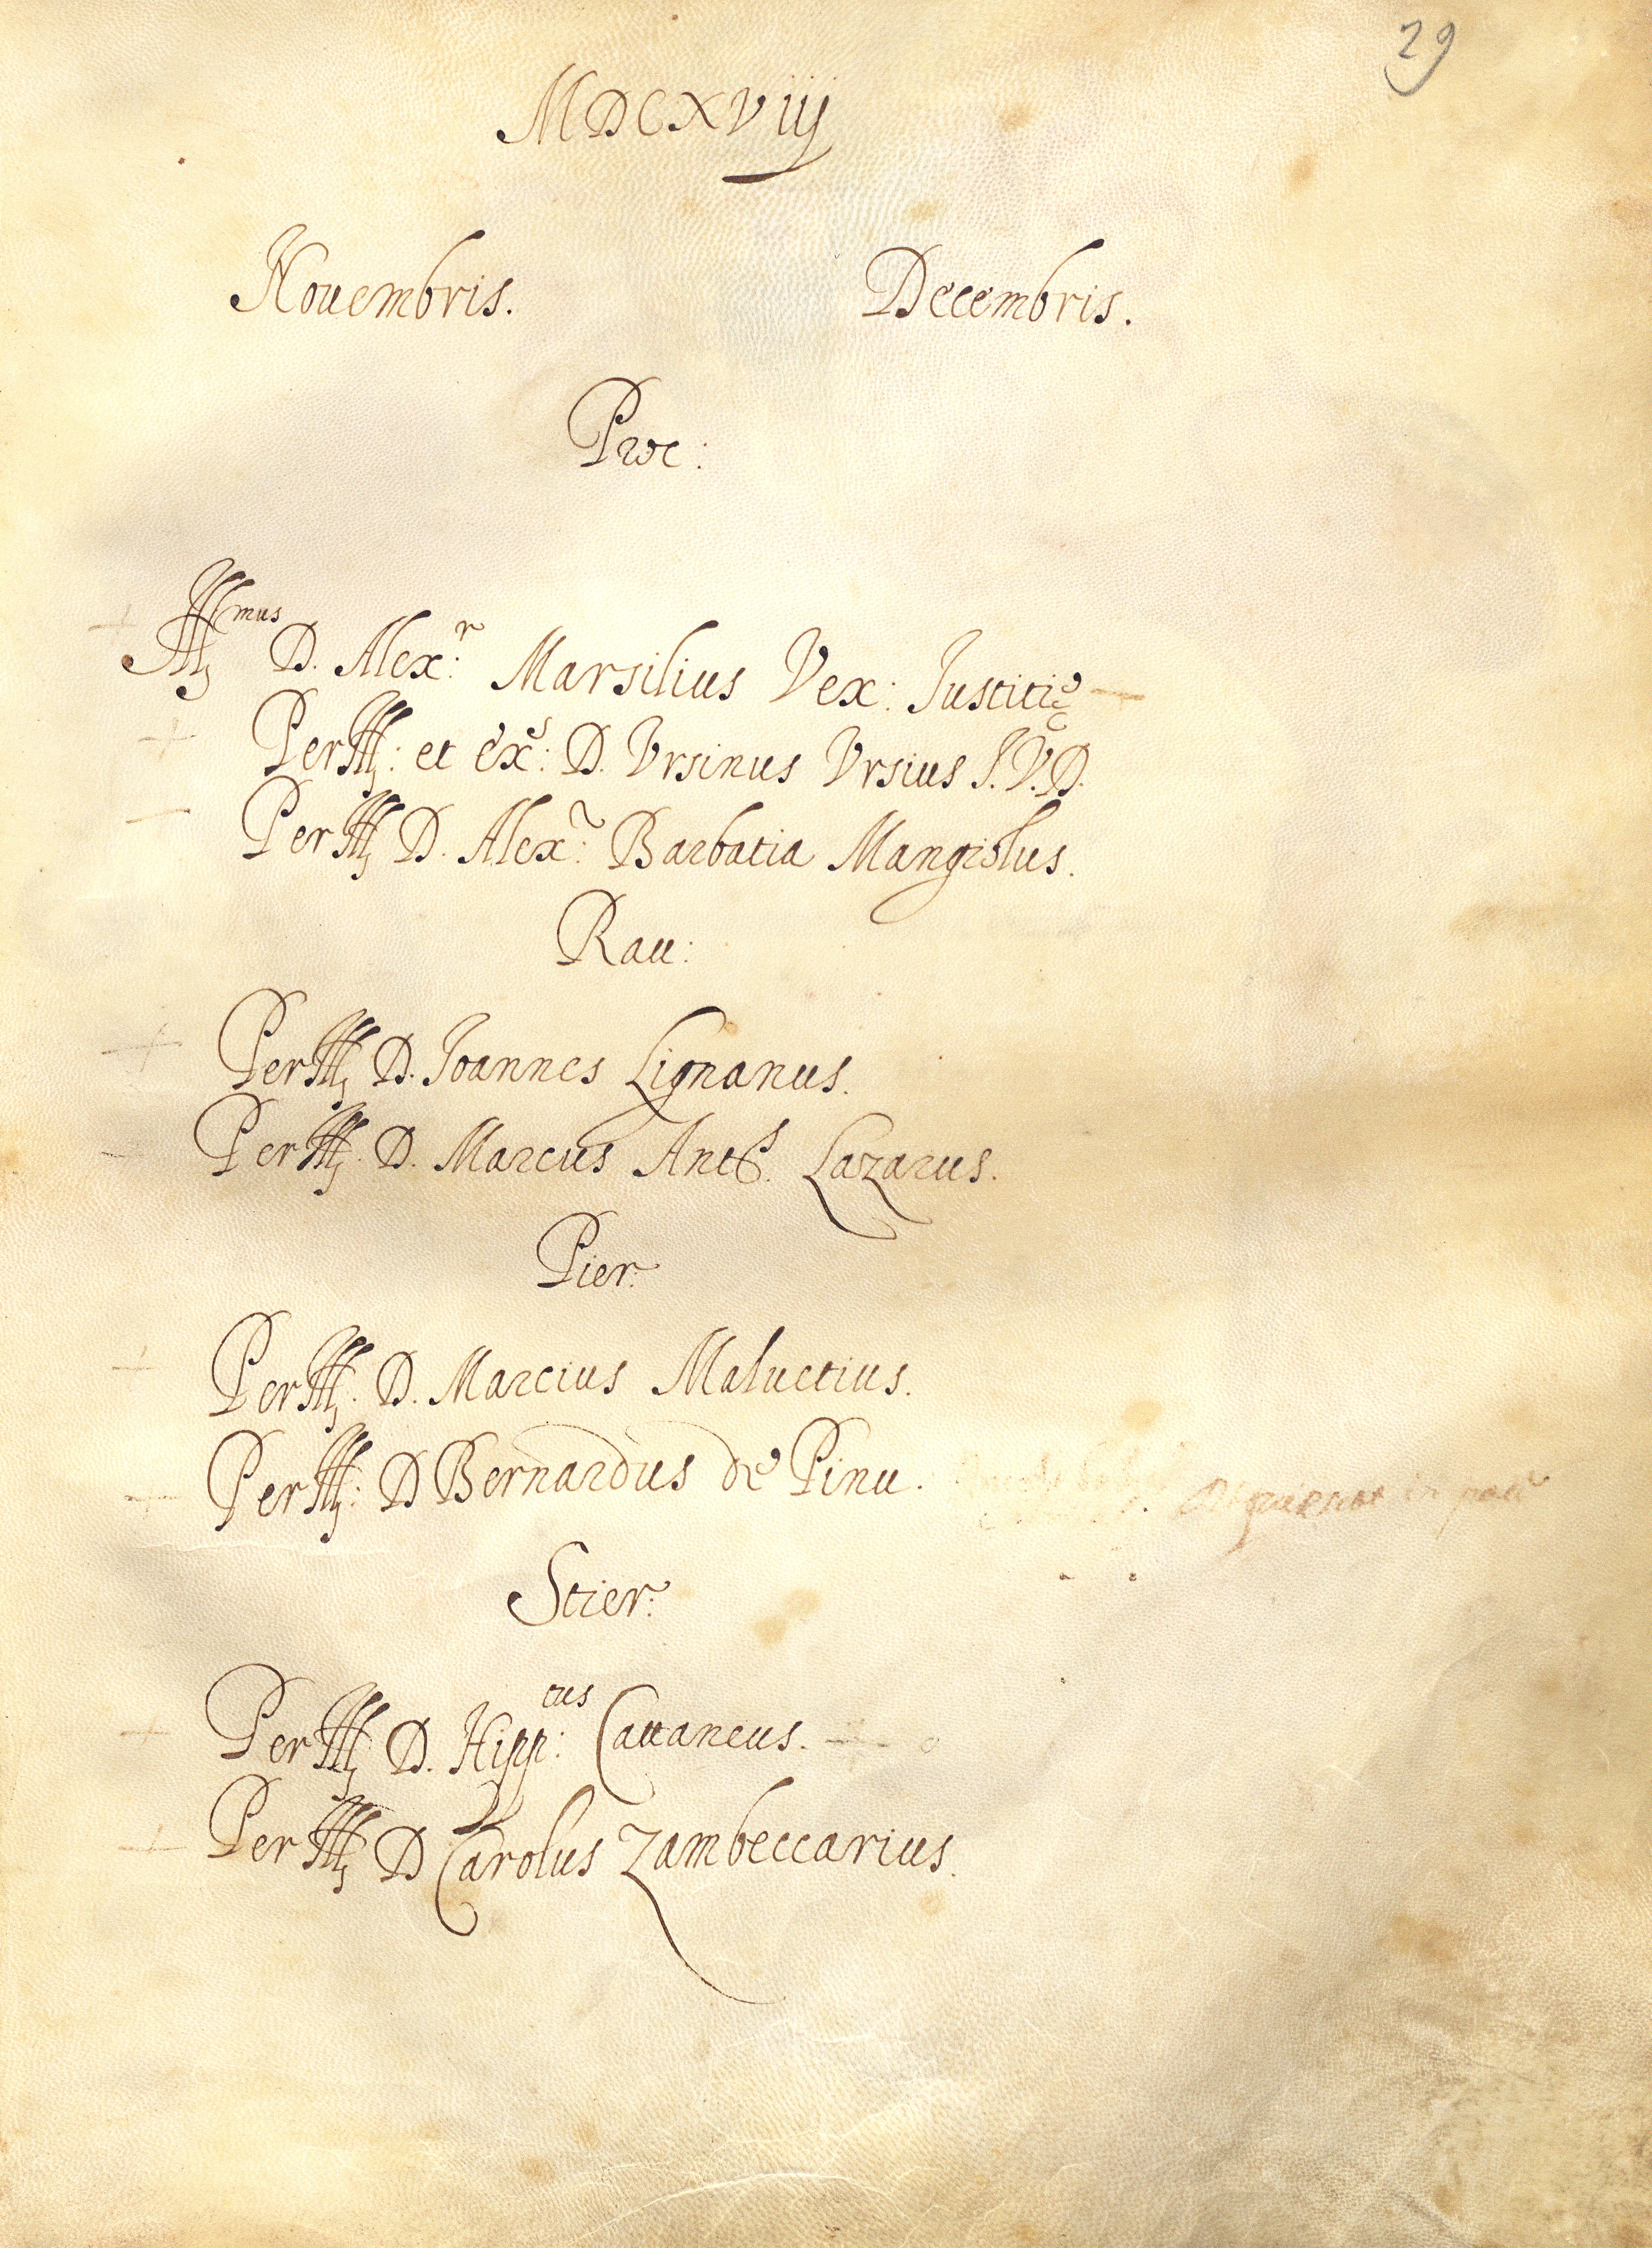 29
MDCXViij
Nouembris. Decembris.
Proc:
Ill.mus D. Alex:r Marsilius Vex: Justitię
Per Ill: et ex:s D. Vrsinus Vrsius J.V.D.
Per Ill D. Alex: Barbatia Mangiolus.
Rau:
Per Ill D. Joannes Lignanus.
Per Ill. D. Marcus Ant.s Lazarus.
Pier:
Per Ill. D. Marcius Maluetius.
Per Ill: D Bernardus de Pinu.
Stier:
Per Ill D. Hipp:tus Cattaneus.
Per Ill D Carolus Zambeccarius.